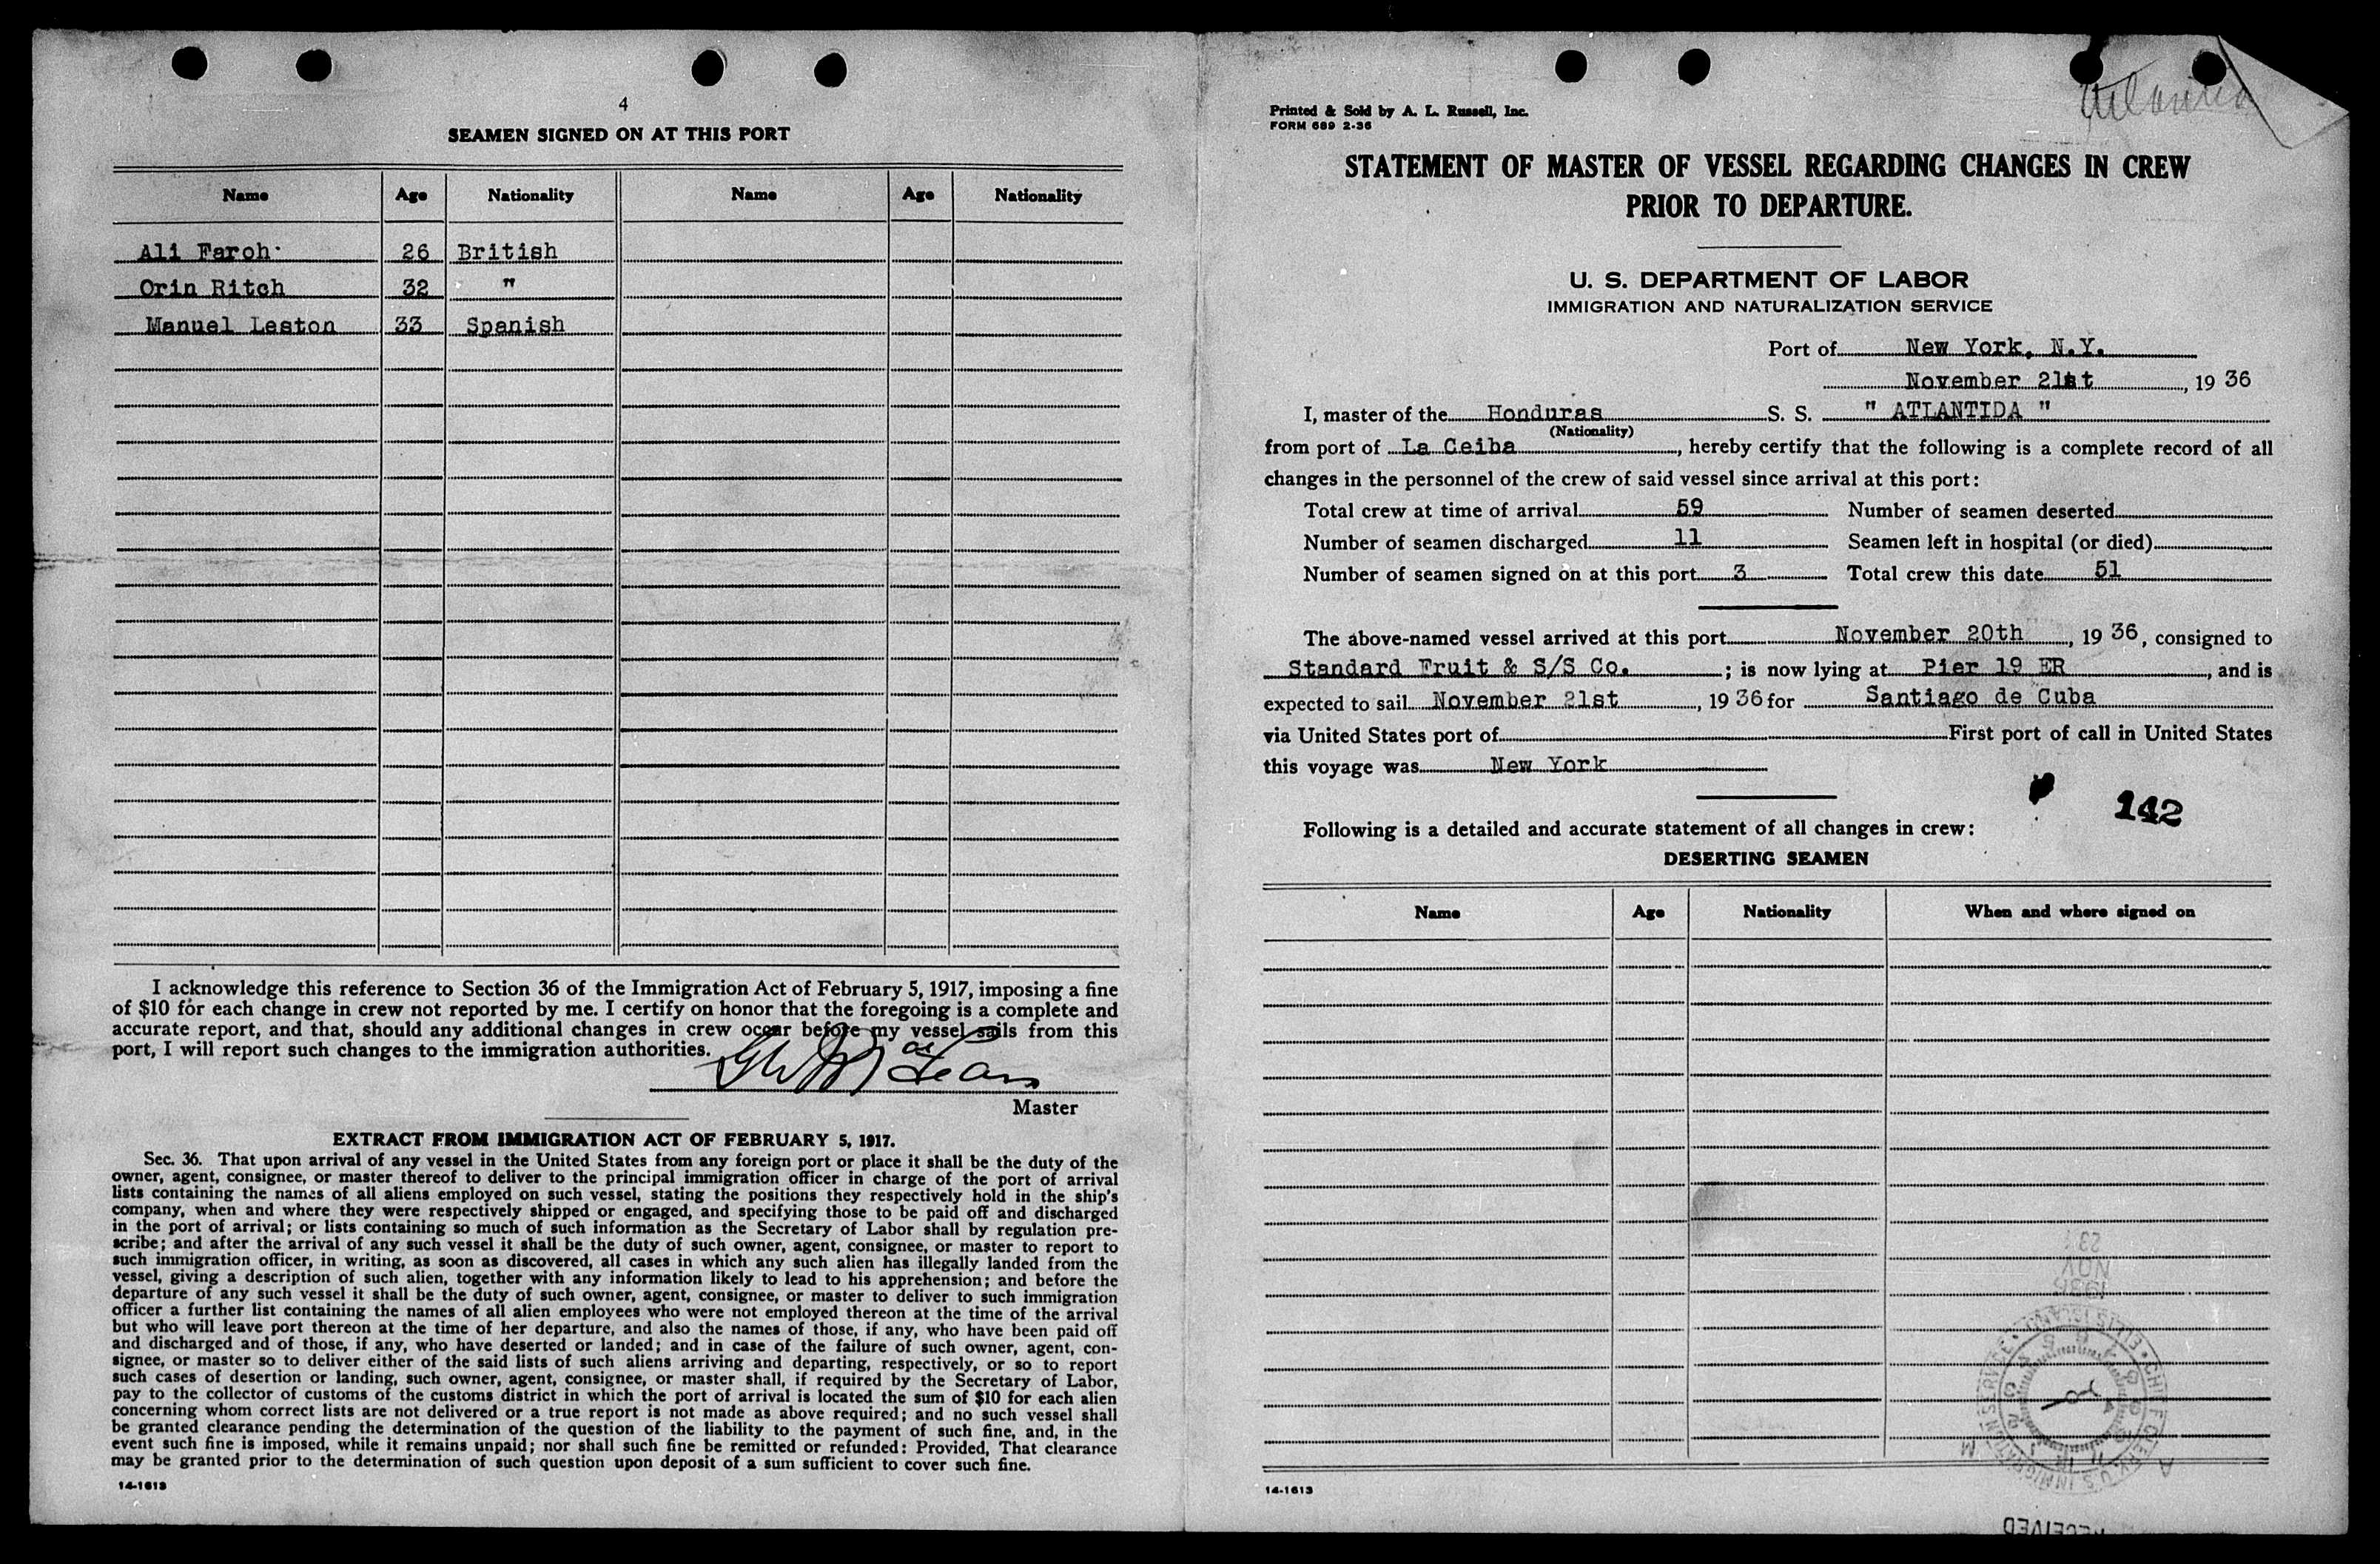 4
SEAMEN SIGNED ON AT THIS PORT
Name Age Nationality Name Age Nationality
Ali Faroh 26 British
Orin Ritch 32 "
Manuel Leston 33 Spanish
I acknowledge this reference to Section 36 of the Immigration Act of February 5, 1917, imposing a fine
of $10 for each change in crew not reported by me. I certify on honor that the foregoing is a complete and
accurate report, and that, should any additional changes in crew occur before my vessel sails from this
port, I will report such changes to the immigration authorities.
Master
EXTRACT FROM IMMIGRATION ACT OF FEBRUARY 5, 1917.
Sec. 36. That upon arrival of any vessel in the United States from any foreign port or place it shall be the duty of the
owner, agent, consignee, or master thereof to deliver to the principal immigration officer in charge of the port of arrival
lists containing the names of all aliens employed on such vessel, stating the positions they respectively hold in the ship's
company, when and where they were respectively shipped or engaged, and specifying those to be paid off and discharged
in the port of arrival; or lists containing so much of such information as the Secretary of Labor shall by regulation pre-
scribe; and after the arrival of any such vessel it shall be the duty of such owner, agent, consignee, or master to report to
such immigration officer, in writing, as soon as discovered, all cases in which any such alien has illegally landed from the
vessel, giving a description of such alien, together with any information likely to lead to his apprehension; and before the
departure of any such vessel it shall be the duty of such owner, agent, consignee, or master to deliver to such immigration
officer a further list containing the names of all alien employees who were not employed thereon at the time of the arrival
but who will leave port thereon at the time of her departure, and also the names of those, if any, who have been paid off
and discharged and of those, if any, who have deserted or landed; and in case of the failure of such owner, agent, con-
signee, or master so to deliver either of the said lists of such aliens arriving and departing, respectively, or so to report
such cases of desertion or landing, such owner, agent, consignee, or master shall, if required by the Secretary of Labor,
pay to the collector of customs of the customs district in which the port of arrival is located the sum of $10 for each alien
concerning whom correct lists are not delivered or a true report is not made as above required; and no such vessel shall
be granted clearance pending the determination of the question of the liability to the payment of such fine, and, in the
event such fine is imposed, while it remains unpaid; nor shall such fine be remitted or refunded: Provided, That clearance
may be granted prior to the determination of such question upon deposit of a sum sufficient to cover such fine.
14-1613
Printed & Sold by A. L. Russell, Inc.
FORM 689 2-36
STATEMENT OF MASTER OF VESSEL REGARDING CHANGES IN CREW
PRIOR TO DEPARTURE.
U. S. DEPARTMENT OF LABOR
IMMIGRATION AND NATURALIZATION SERVICE
Port of New York, N.Y.
November 21st, 19 36
I, master of the Honduras S. S. " ATLANTIDA "
(Nationality)
from port of La Ceiba, hereby certify that the following is a complete record of all
changes in the personnel of the crew of said vessel since arrival at this port:
Total crew at time of arrival 59 Number of seamen deserted
Number of seamen discharged 11 Seamen left in hospital (or died)
Number of seamen signed on at this port 3 Total crew this date 51
The above-named vessel arrived at this port November 20th, 19 36, consigned to
Standard Fruit & S/S Co. ; is now lying at Pier 19 ER, and is
expected to sail November 21st, 19 36 for Santiago de Cuba
via United States port of First port of call in United States
this voyage was New York
142
Following is a detailed and accurate statement of all changes in crew:
DESERTING SEAMEN
Name Age Nationality When and where signed on
NOV
1936
14-1613
RECEIVED